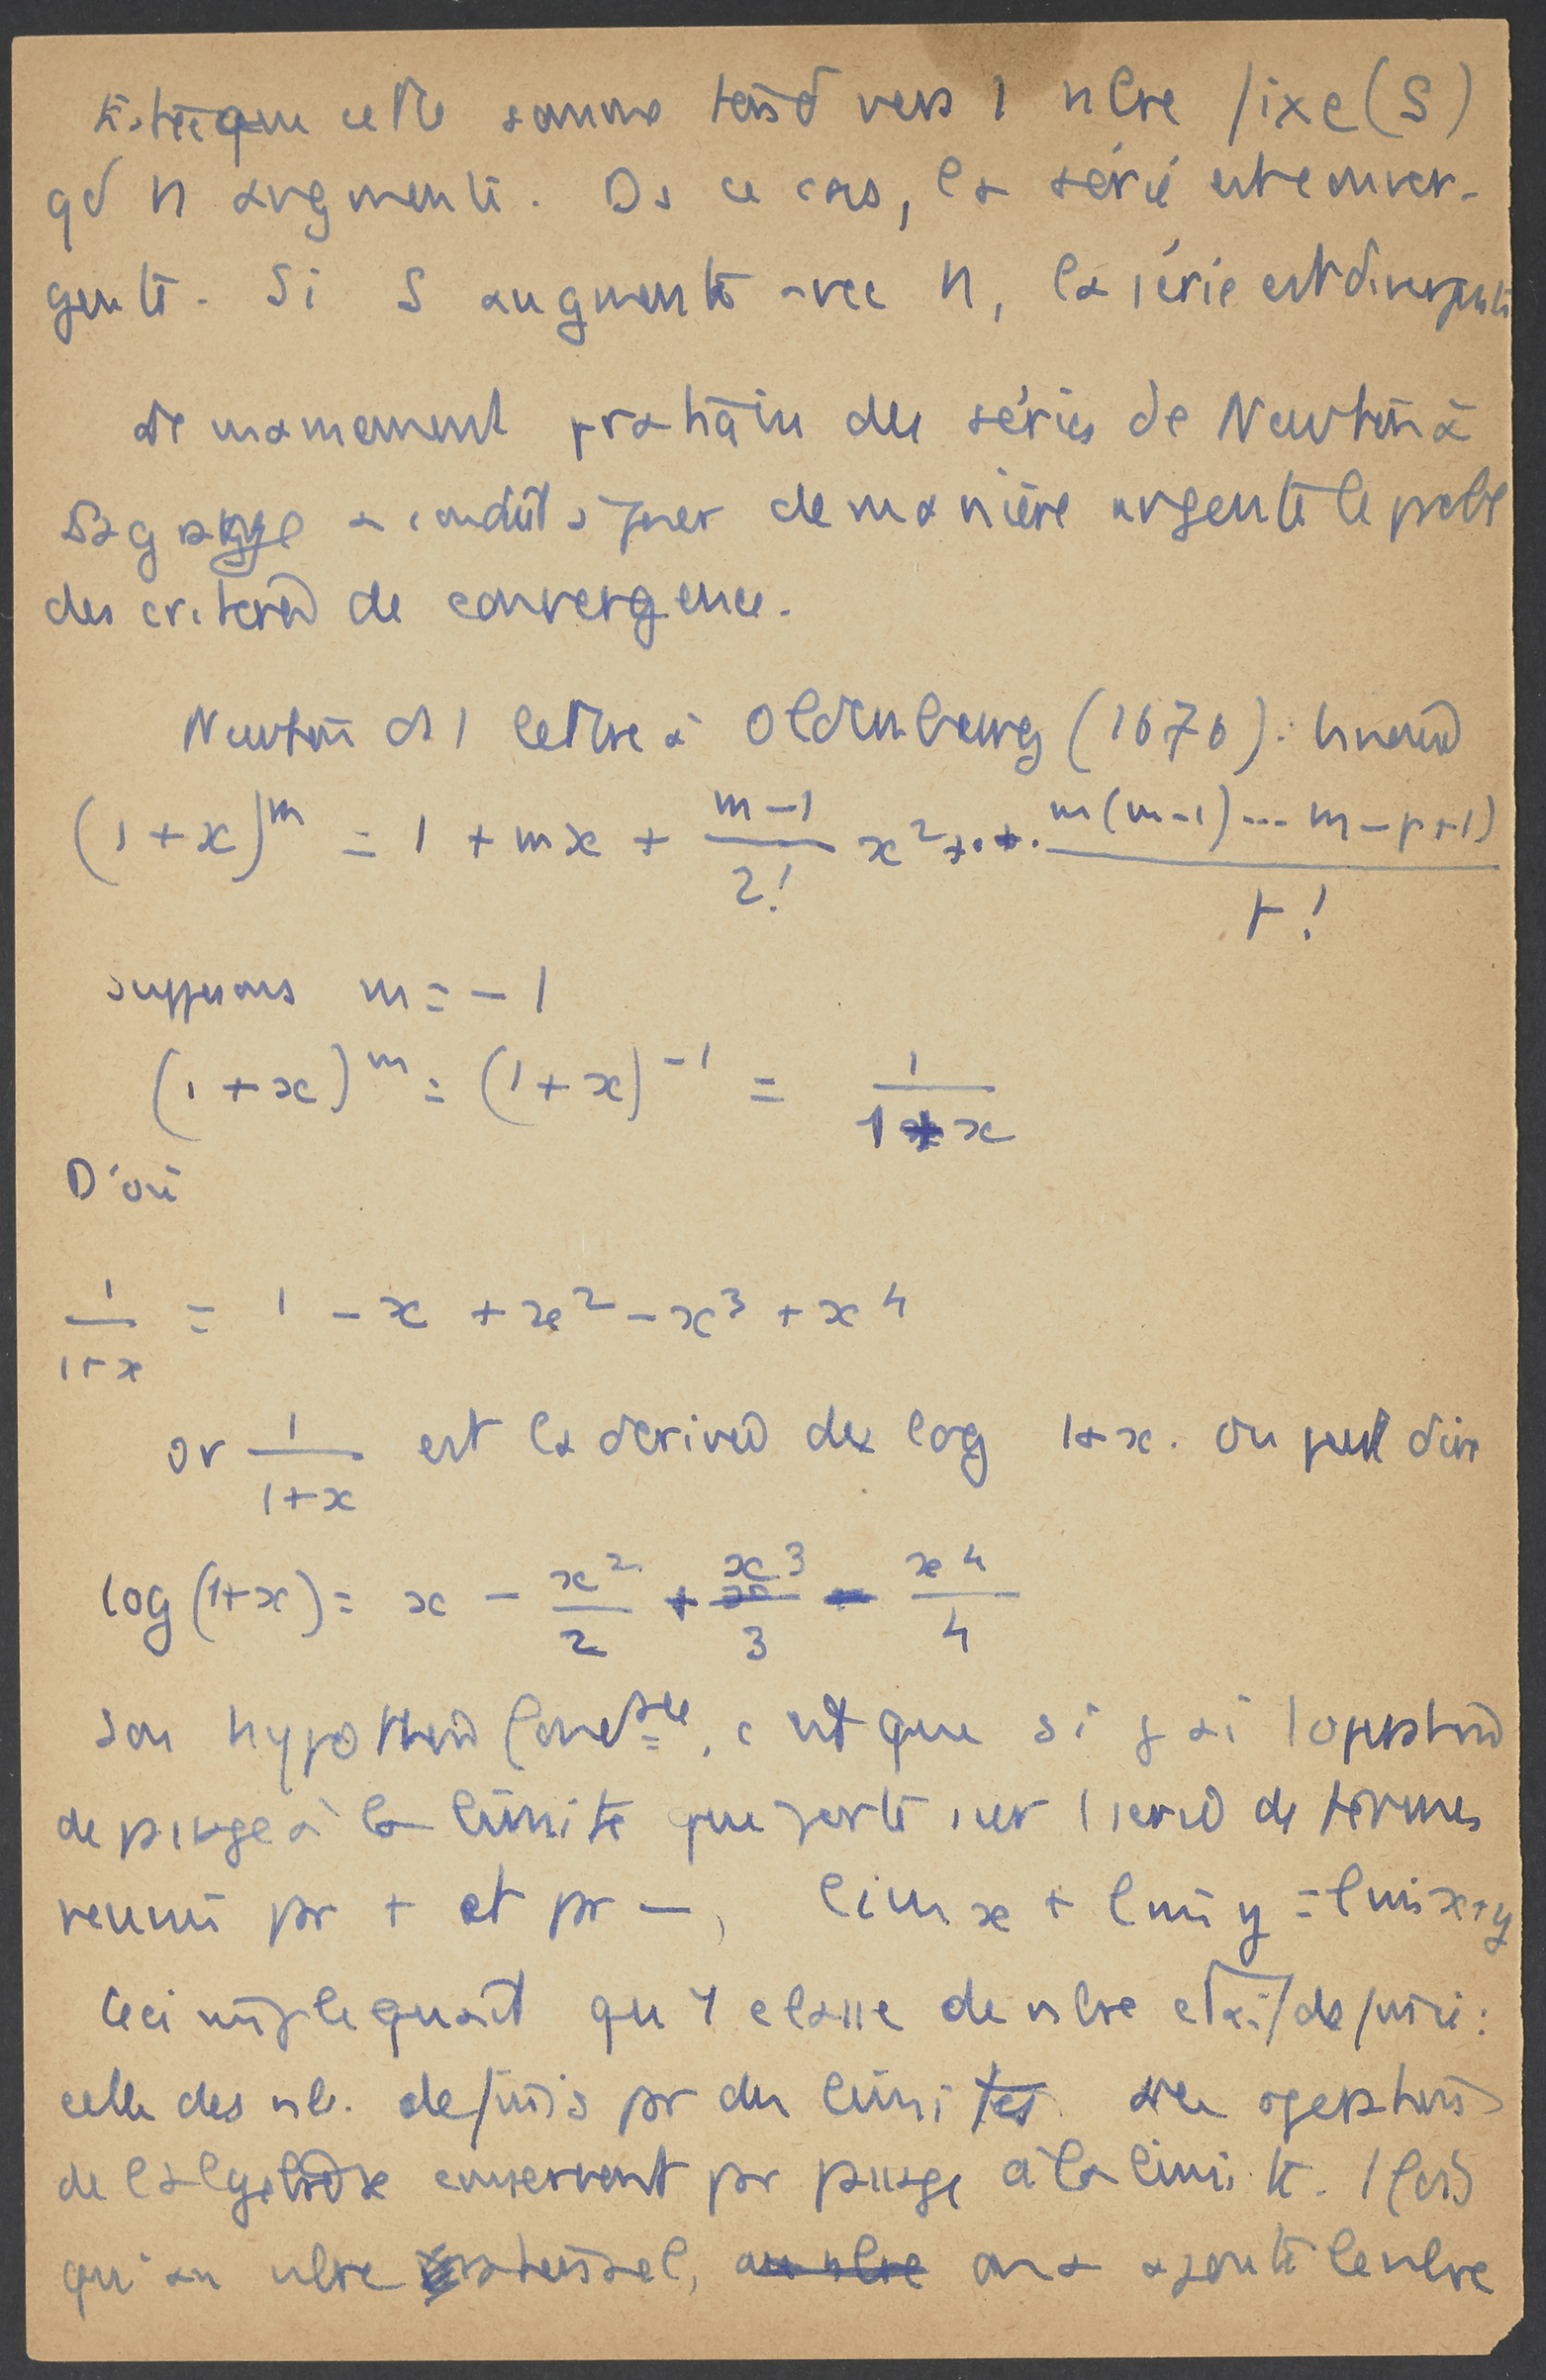 que cette somme tend vers 1 nbre fixe (S)
qd n augmente. Ds ce cas, la série est conver-
gente. Si S augmente avec n, la série est divergente
Le maniement pratique des séries de Newton à
Lagrange a conduit à poser de manière urgente le probl
des critères de convergence.
Newton ds 1 lettre à Oldenburg (1676) :
(1+x)^m = 1 + mx + \frac{m-1}{2!} x^2 + .. + . \frac{m(m-1)...m-p+1)}{p!}
supposons m = -1
(1+x)^m = (1+x)^{-1} = \frac{1}{1+x}
D'où
\frac{1}{1+x} = 1 - x + x^2 - x^3 + x^4
or \frac{1}{1+x} est la dérivée de log 1+x. On peut dire
log(1+x) = x - \frac{x^2}{2} + \frac{x^3}{3} - \frac{x^4}{4}
Son hypoth , c'est que si j'ai 1 opération
de passage à la limite qui porte sur 1 série de termes
réunis pr + et pr -, lim x + lim y = lim x+y
Ceci impliquait qu'1 classe de nbre était définie :
celle des nb. définis pr des limites. opérations
de l'algèbre conservent pr passage à la limite. 1 fois
qu'au nbre rationnel, on a ajouté le nbre